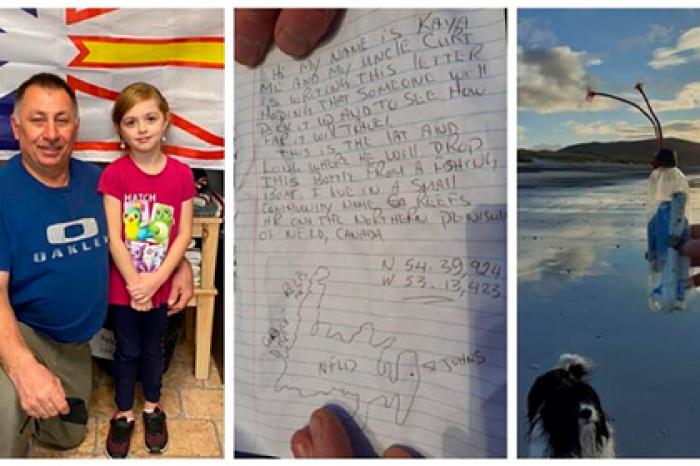 OAKLEY
HATCH
HI MY NAME IS KAYA
ME AND MY UNCLE CURT
IS WRITING THIS LETTER
HOPING THAT SOMEONE WILL
PICK IT UP AND TO SEE HOW
FAR IT WILL TRAVEL
THIS IS THE LAT AND
LONG WHERE HE WILL DROP
THIS BOTTLE FROM A FISHING
BOAT. I LIVE IN A SMALL
COMMUNITY NAME REEFS
HR ON THE NORTHERN PENISULA
OF NFLD, CANADA.
N 54.39,924
W 53.13,423
NFLD
JOHNS